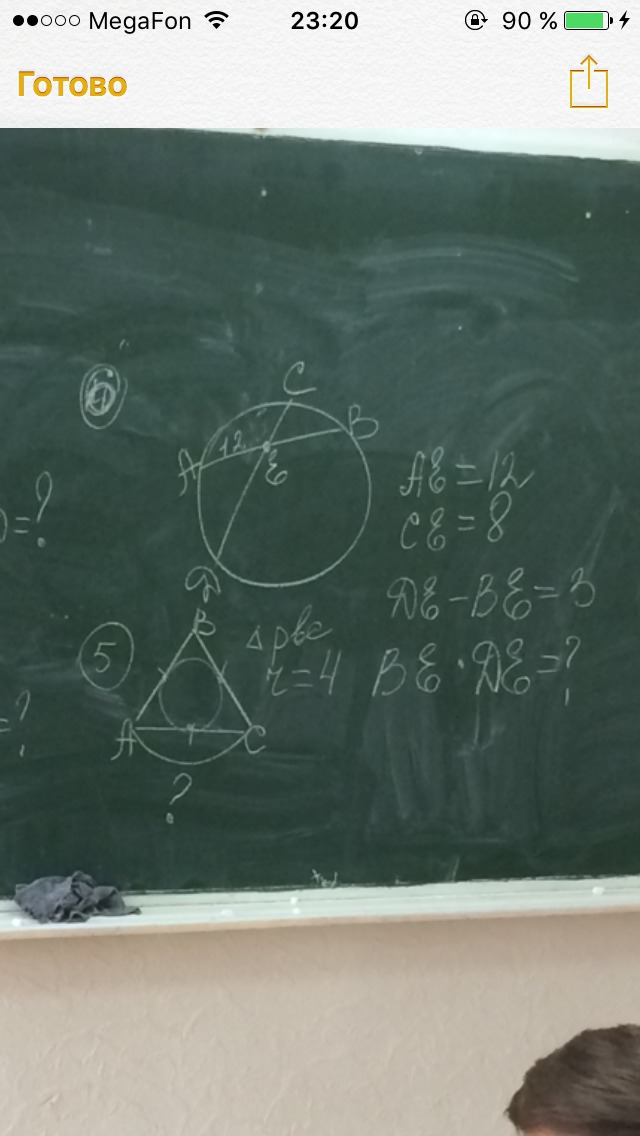 MegaFon 23:20 90 %
Готово
C
B
A 12
E
AE = 12
CE = 8
D
DE - BE = 3
BE · DE = ?
) = ?
5
B
Δ рвс
r = 4
A C
?
= ?